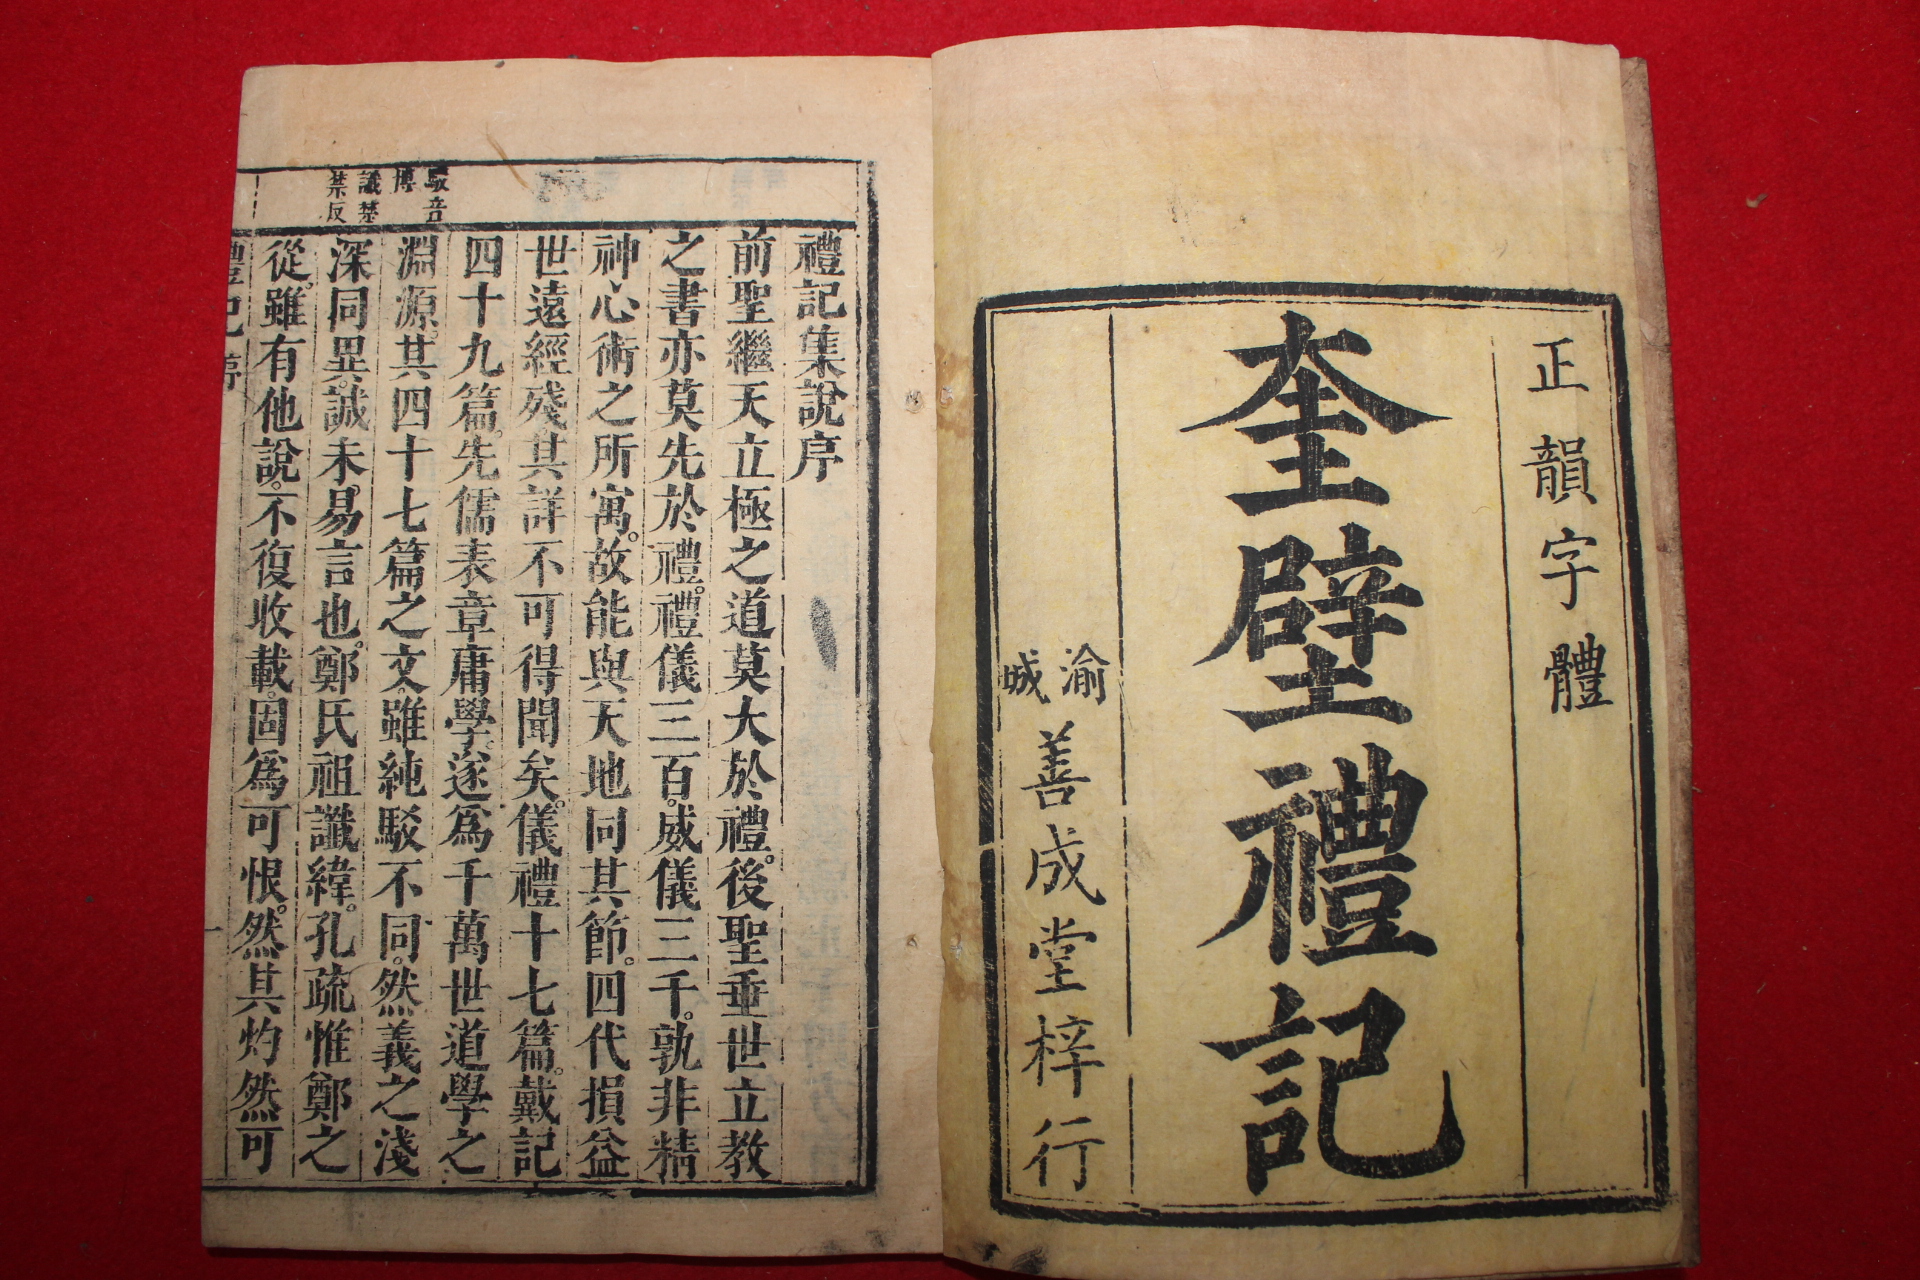 正韻字體
奎壁禮記
渝城
善成堂梓行
駁音
博
讖楚
禁反
禮記集說序
前聖繼天立極之道莫大於禮。後聖垂世立教
之書亦莫先於禮。禮儀三百。威儀三千。孰非精
神心術之所寓。故能與天地同其節。四代損益
世遠經殘其詳不可得聞矣。儀禮十七篇。戴記
四十九篇。先儒表章庸學。遂為千萬世道學之
淵源。其四十七篇之文。雖純駁不同。然義之淺
深同異。誠未易言也。鄭氏祖讖緯。孔疏惟鄭之
從。雖有他說。不復收載。固為可恨。然其灼然可
禮記 序 一